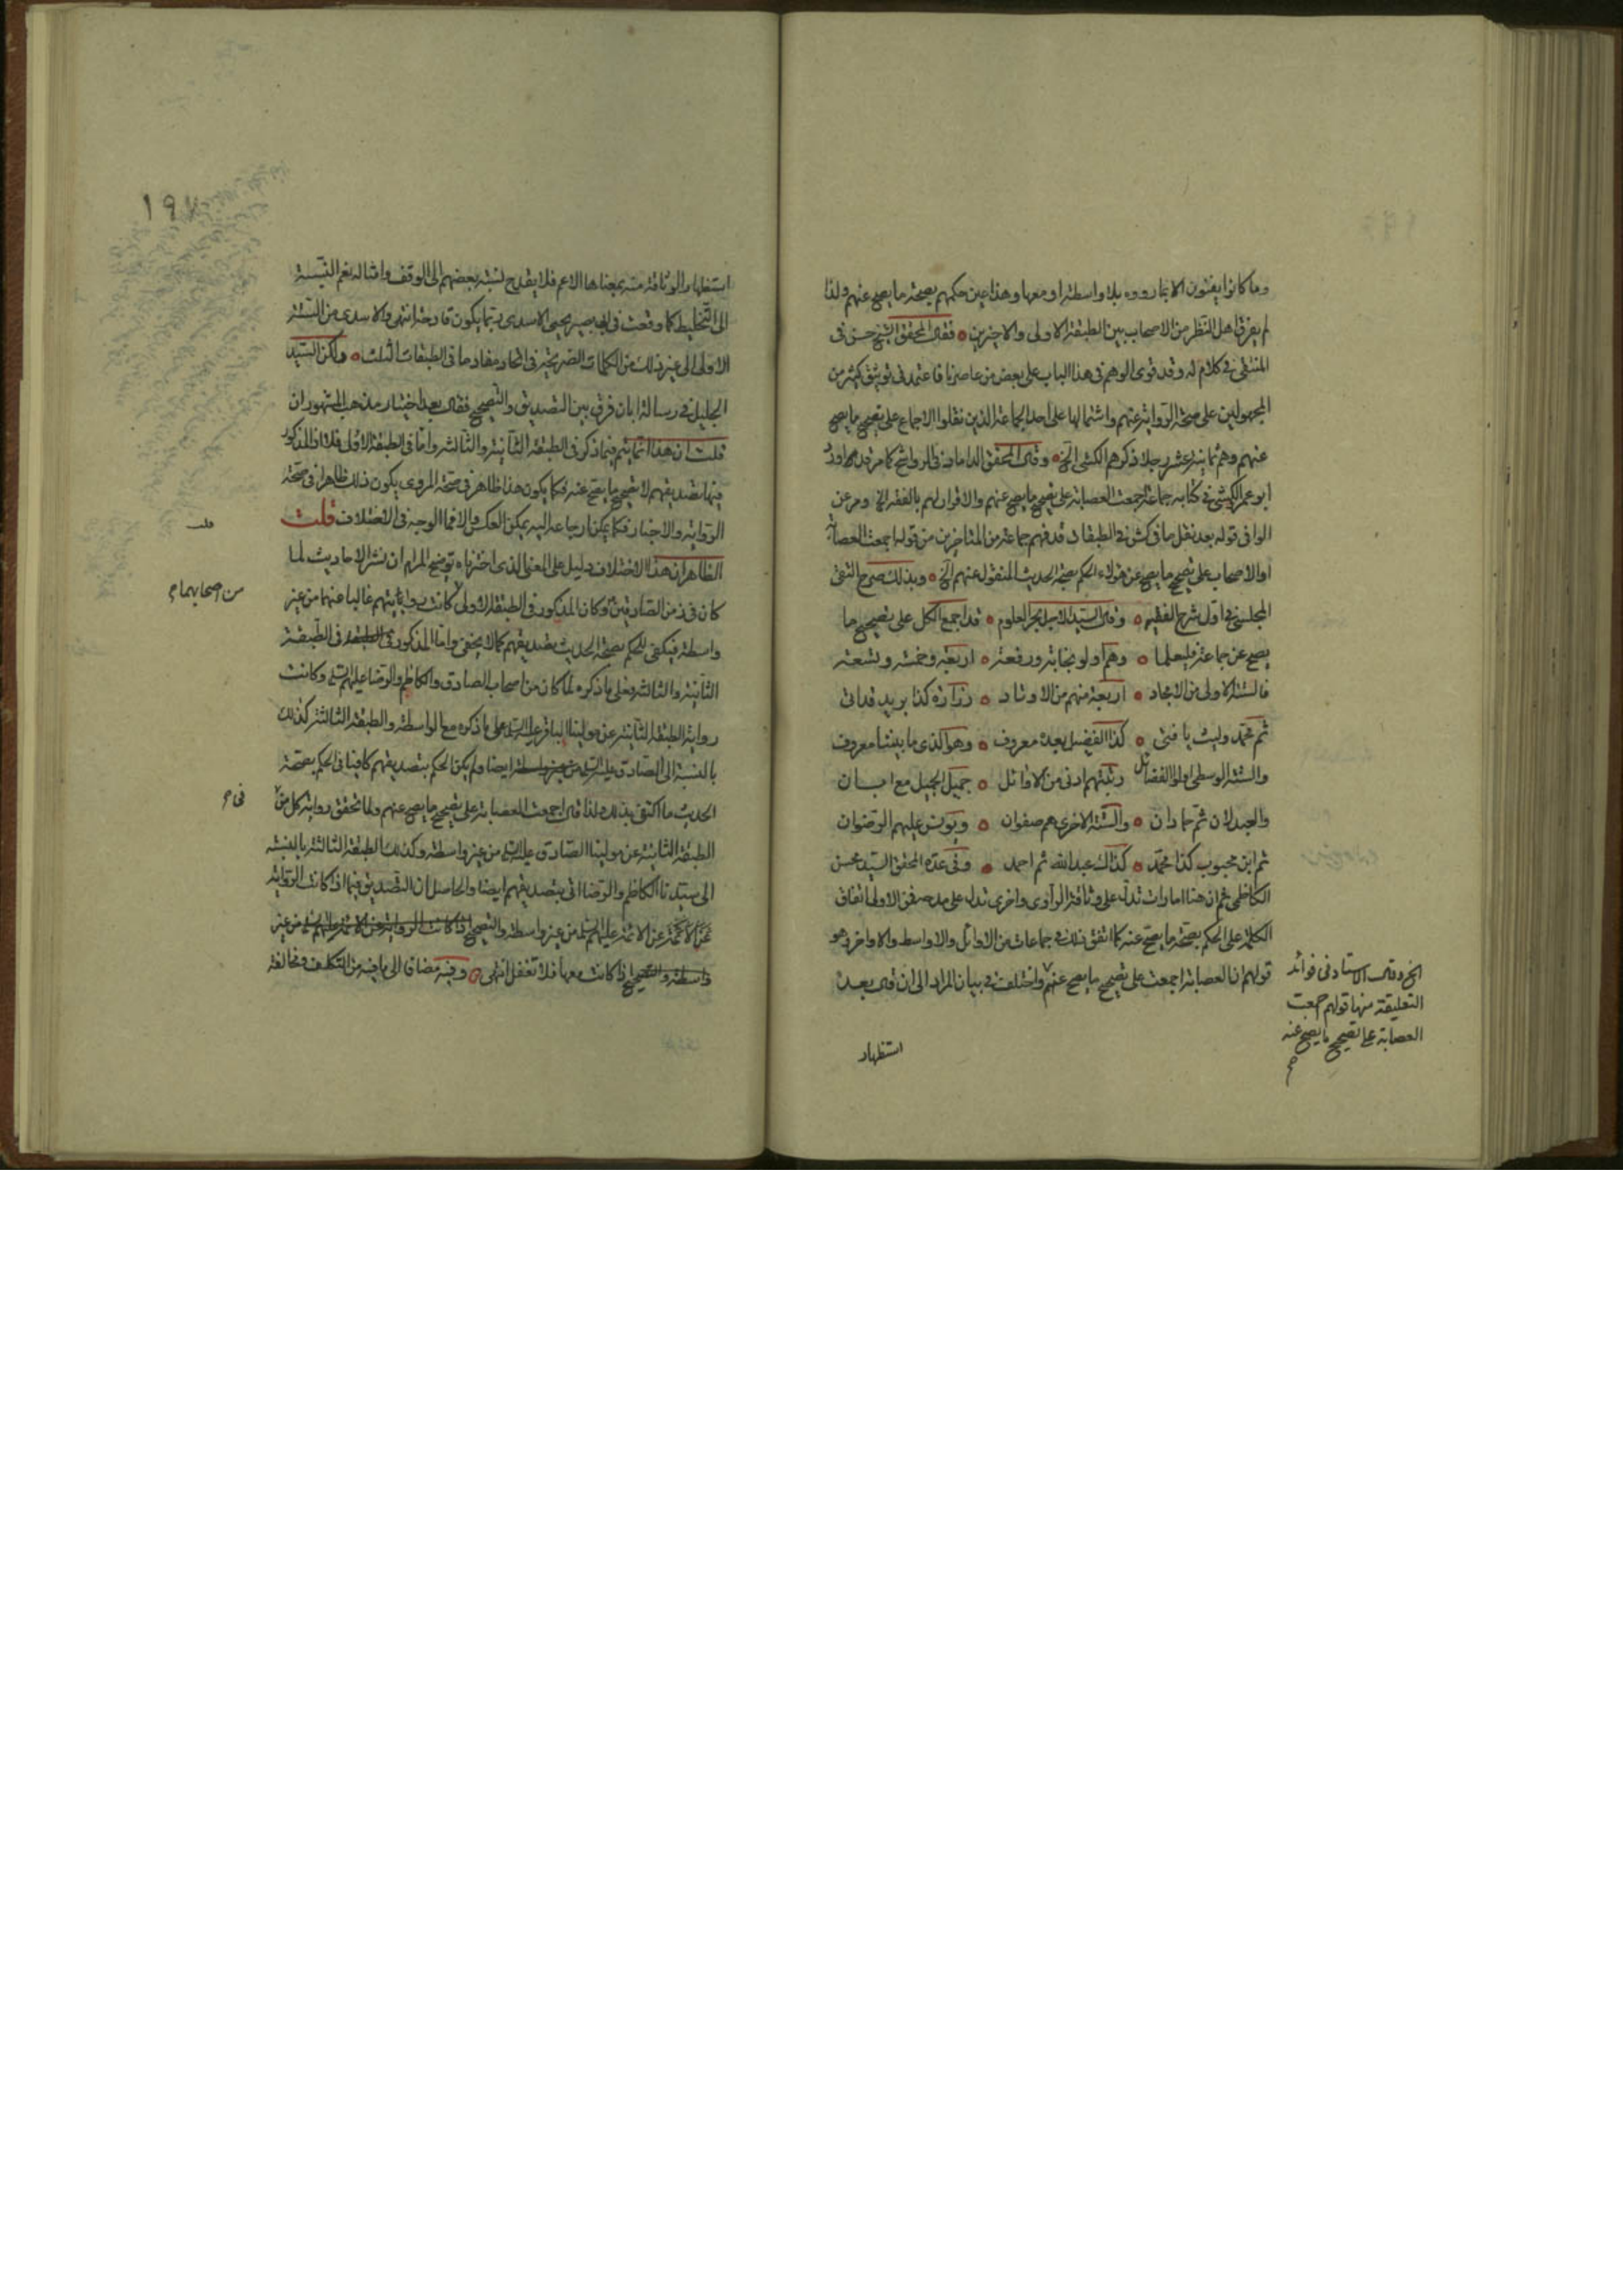 وما كانوا يفتون الا بما رووه بلا واسطة او معها وهذا عين حكمهم بصحة ما يصح عنهم ولذا
لم يفرق اهل النظر من الاصحاب بين الطبقة الاولى والاخيرين فقال المحقق الشيخ حسن في
المنتقى في كلام له وقد قوى الوهم في هذا الباب على بعض من عاصرناه فاعتمد في توثيق كثير من
المجهولين على صحة الرواية عنهم واشتمالها على احد الجماعة الذين نقلوا الاجماع على تصحيح ما يصح
عنهم وهم ثمانية عشر رجلا ذكرهم الكشي الخ وقال المحقق الداماد في الرواشح كما مر قد اورد
ابو عمر الكشي في كتابه جماعة اجمعت العصابة على تصحيح ما يصح عنهم والاقرار لهم بالفقه الخ ومر عن
الوافي قوله بعد نقل ما في كش في الطبقات قد فهم جماعة من المتاخرين من قوله اجمعت العصابة
او الاصحاب على تصحيح ما يصح عن هؤلاء الحكم بصحة الحديث المنقول عنهم الخ وبذلك صرح التقي
المجلسي في اول شرح الفقيه وقال السيد الاجل بحر العلوم قد اجمع الكل على تصحيح ما
يصح عن جماعة فليعلما وهم اولو نجابة ورفعة اربعة وخمسة وتسعة
فالستة الاولى من الامجاد اربعة منهم من الاوتاد زرارة كذا بريد قد اتى
ثم محمد وليث يا فتى كذا الفضيل بعده معروف وهو الذي ما بيننا معروف
والستة الوسطى اولو الفضائل رتبتهم ادنى من الاوائل جميل الجميل مع ابان
والعبدلان ثم حمادان والستة الاخرى هم صفوان ويونس عليهم الرضوان
ثم ابن محبوب كذا محمد كذاك عبد الله ثم احمد وفي عدة المحقق السيد محسن
الكاظمي ثم ان هنا امارات تدل على وثاقة الراوي واخرى تدل على مدحه فمن الاولى اتفاق
الكلمة على الحكم بصحة ما يصح عنه كما اتفق ذلك في جماعات من الاوائل والاواسط والاواخر وهو
قولهم ان العصابة اجمعت على تصحيح ما يصح عنهم واختلف في بيان المراد الى ان قال بعد
الخ وقال الاستاد في فوائد
التعليقة منها قولهم اجمعت
العصابة على تصحيح ما يصح عنه
استظهار
١٩٧
استظهار الوثاقة منه بمعناها الاعم فلا يقدح نسبة بعضهم الى الوقف وامثاله نعم النسبة
الى التخليط كما وقعت في ابي بصير يحيى الاسدي ربما يكون قادحة انتهى والاسدي من الستة
الاولى الى غير ذلك من الكلمات الصريحة في اتحاد مفاد ما في الطبقات الثلث ولكن السيد
الجليل في رسالة ابان فرق بين التصديق والتصحيح فقال بعد اختيار مذهب المشهور ان
قلت ان هذا انما يتم فيما ذكر في الطبقة الثانية والثالثة واما في الطبقة الاولى فلا اذ المذكور
فيها تصديقهم لا تصحيح ما يصح عنه فكما يكون هذا ظاهر في صحة المروي يكون ذلك ظاهرا في صحة
الرواية والاخبار فكما يمكن ارجاعه اليه يمكن العكس والا فما الوجه في الاختلاف قلت
قلت
الظاهر ان هذا الاختلاف دليل على المعنى الذي اخترناه توضيح المرام ان نشر الاحاديث لما
من اصحابهما م
كان في زمن الصادقين وكان المذكور في الطبقة الاولى كانت روايتهم غالبا عنهما من غير
واسطة فيكفي للحكم بصحة الحديث تصديقهم كما لا يخفى واما المذكور في الطبقة
الثانية والثالثة فعلى ما ذكره لما كان من اصحاب الصادق والكاظم والرضا عليهم السلم وكانت
رواية الطبقة الثانية عن مولينا الباقر عليه السلم على ما ذكره مع الواسطة والطبقة الثالثة كذلك
بالنسبة الى الصادق عليه السلم ايضا ولم يكن الحكم بتصديقهم كافيا في الحكم بصحة
في م
الحديث ما اكتفى بذلك ولذا قال اجمعت العصابة على تصحيح ما يصح عنهم ولما تحقق رواية كل من
الطبقة الثانية عن مولينا الصادق عليه السلم من غير واسطة وكذلك الطبقة الثالثة بالنسبة
الى سيدنا الكاظم والرضا اتى بتصديقهم ايضا والحاصل ان التصديق فيما اذا كانت الرواية
عن الائمة عليهم السلم من غير واسطة والتصحيح
اذا كانت معها فلا تغفل انتهى وفيه مضافا الى ما فيه من التكلف ومخالفة